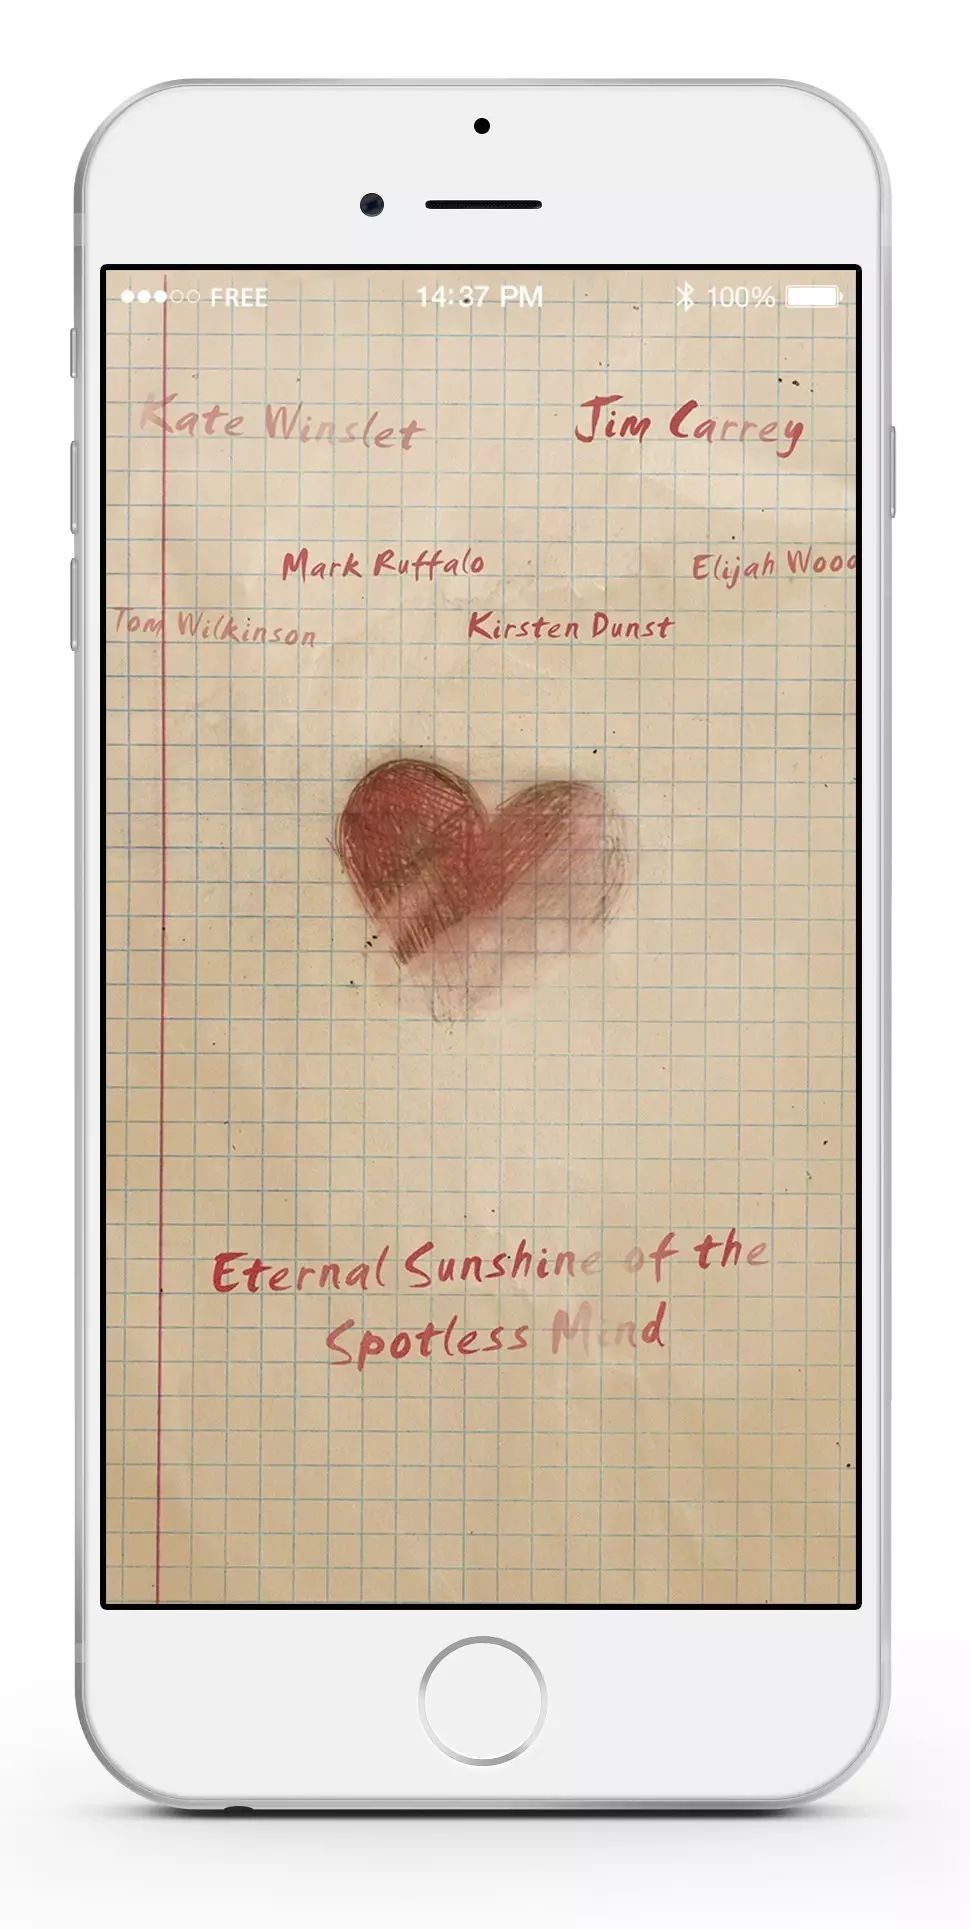 FREE 14:37 PM 100%
Kate Winslet Jim Carrey
Mark Ruffalo Elijah Wood
Tom Wilkinson Kirsten Dunst
Eternal Sunshine of the
Spotless Mind